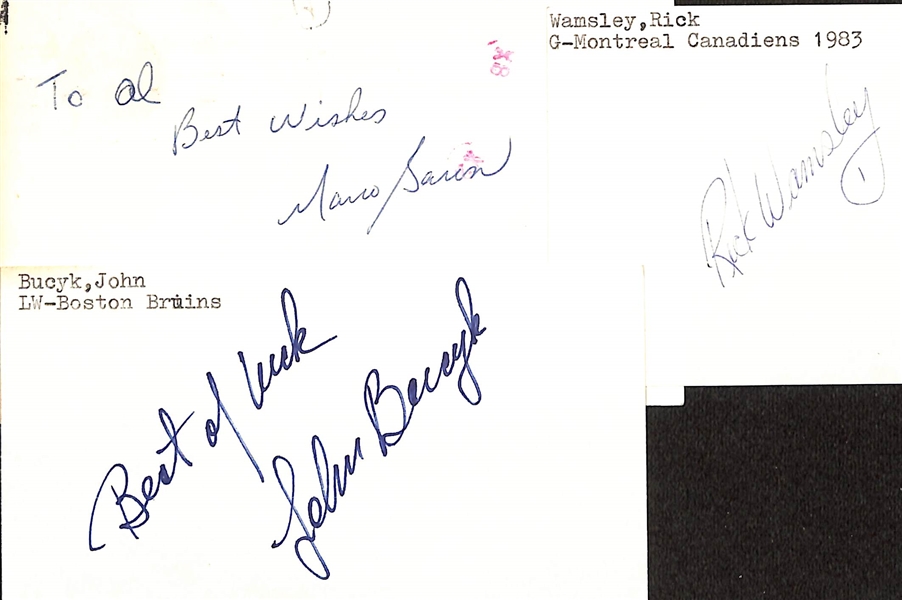 To Al
Best Wishes
Mario
Wamsley,Rick
G-Montreal Canadiens 1983
Rick Wamsley
Bucyk,John
LW-Boston Bruins
Best of luck
John Bucyk